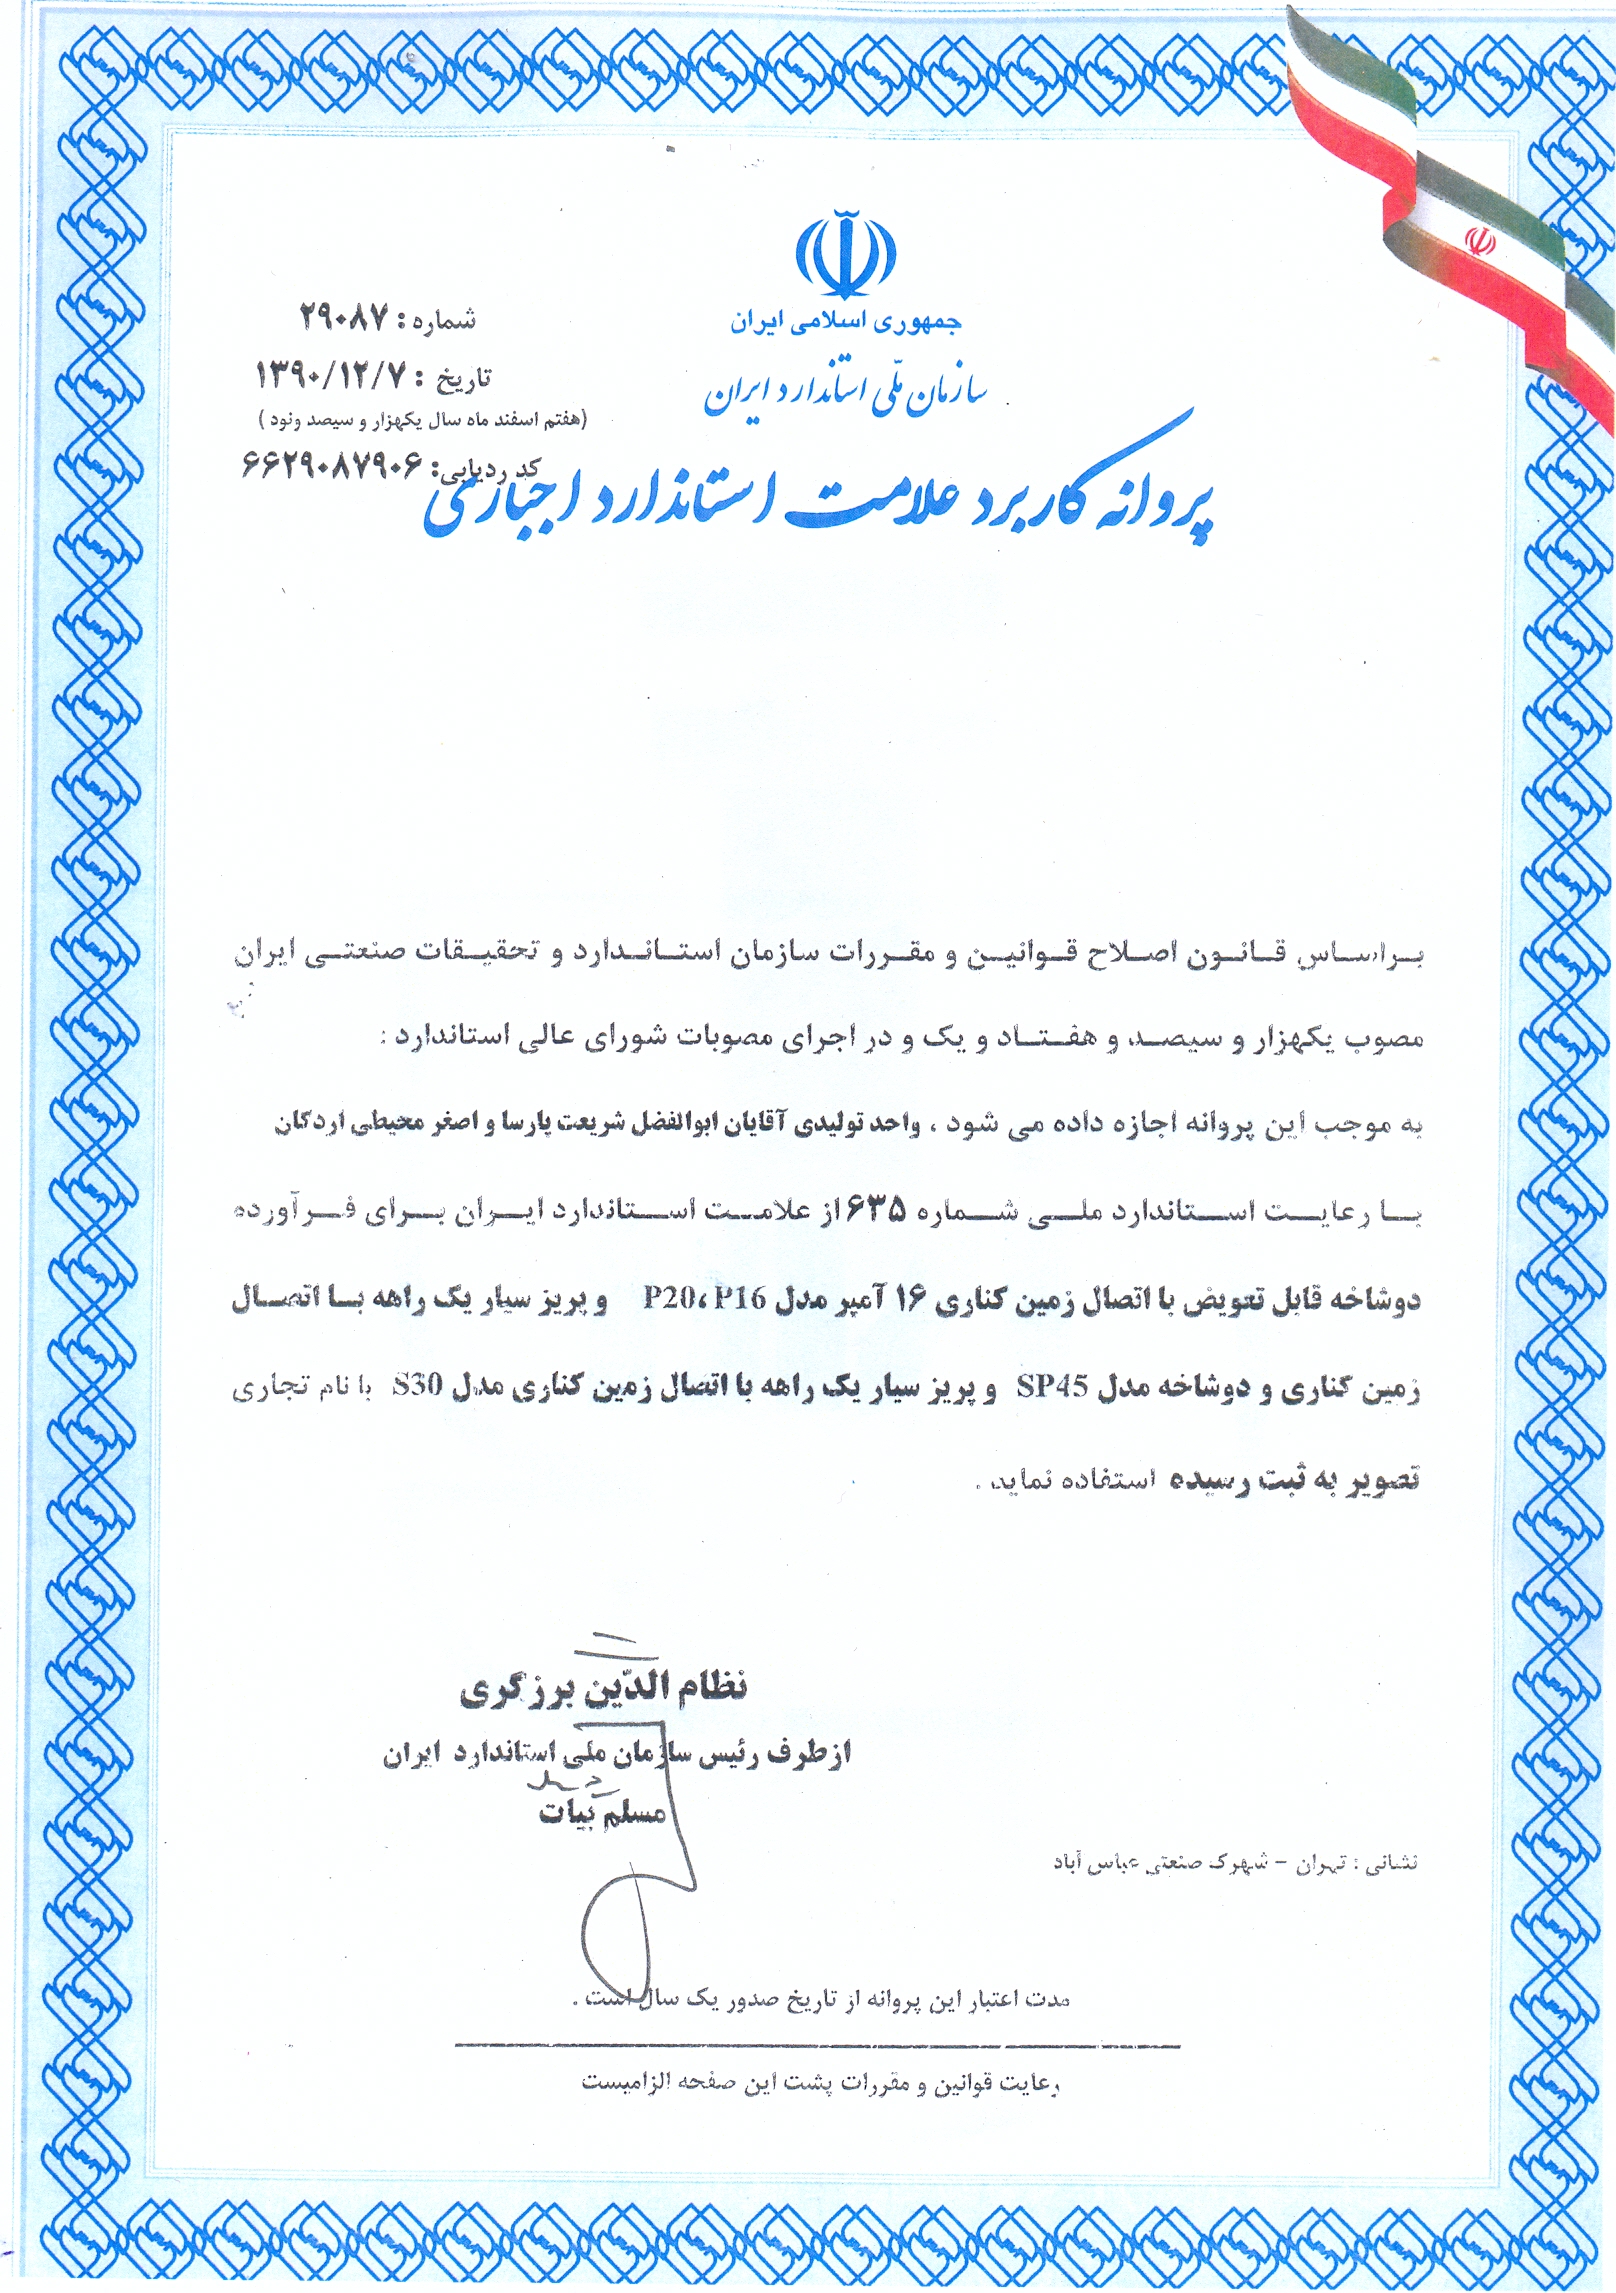 جمهوری اسلامی ایران
سازمان ملّی استاندارد ایران
شماره : ۲۹۰۸۷
تاریخ : ۱۳۹۰/۱۲/۷
(هفتم اسفند ماه سال یکهزار و سیصد ونود )
کد ردیابی: ۶۶۲۹۰۸۷۹۰۶
پروانه کاربرد علامت استاندارد اجباری
براساس قانون اصلاح قوانین و مقررات سازمان استاندارد و تحقیقات صنعتی ایران
مصوب یکهزار و سیصد و هفتاد و یک و در اجرای مصوبات شورای عالی استاندارد :
به موجب این پروانه اجازه داده می شود ، واحد تولیدی آقایان ابوالفضل شریعت پارسا و اصغر محیطی اردکان
با رعایت استاندارد ملی شماره ۶۳۵ از علامت استاندارد ایران برای فرآورده
دوشاخه قابل تعویض با اتصال زمین کناری ۱۶ آمپر مدل P20، P16 و پریز سیار یک راهه با اتصال
زمین کناری و دوشاخه مدل SP45 و پریز سیار یک راهه با اتصال زمین کناری مدل S30 با نام تجاری
تصویر به ثبت رسیده استفاده نماید .
نظام الدّین برزگری
ازطرف رئیس سازمان ملی استاندارد ایران
مسلم بیات
نشانی : تهران – شهرک صنعتی عباس آباد
مدت اعتبار این پروانه از تاریخ صدور یک سال است .
رعایت قوانین و مقررات پشت این صفحه الزامیست